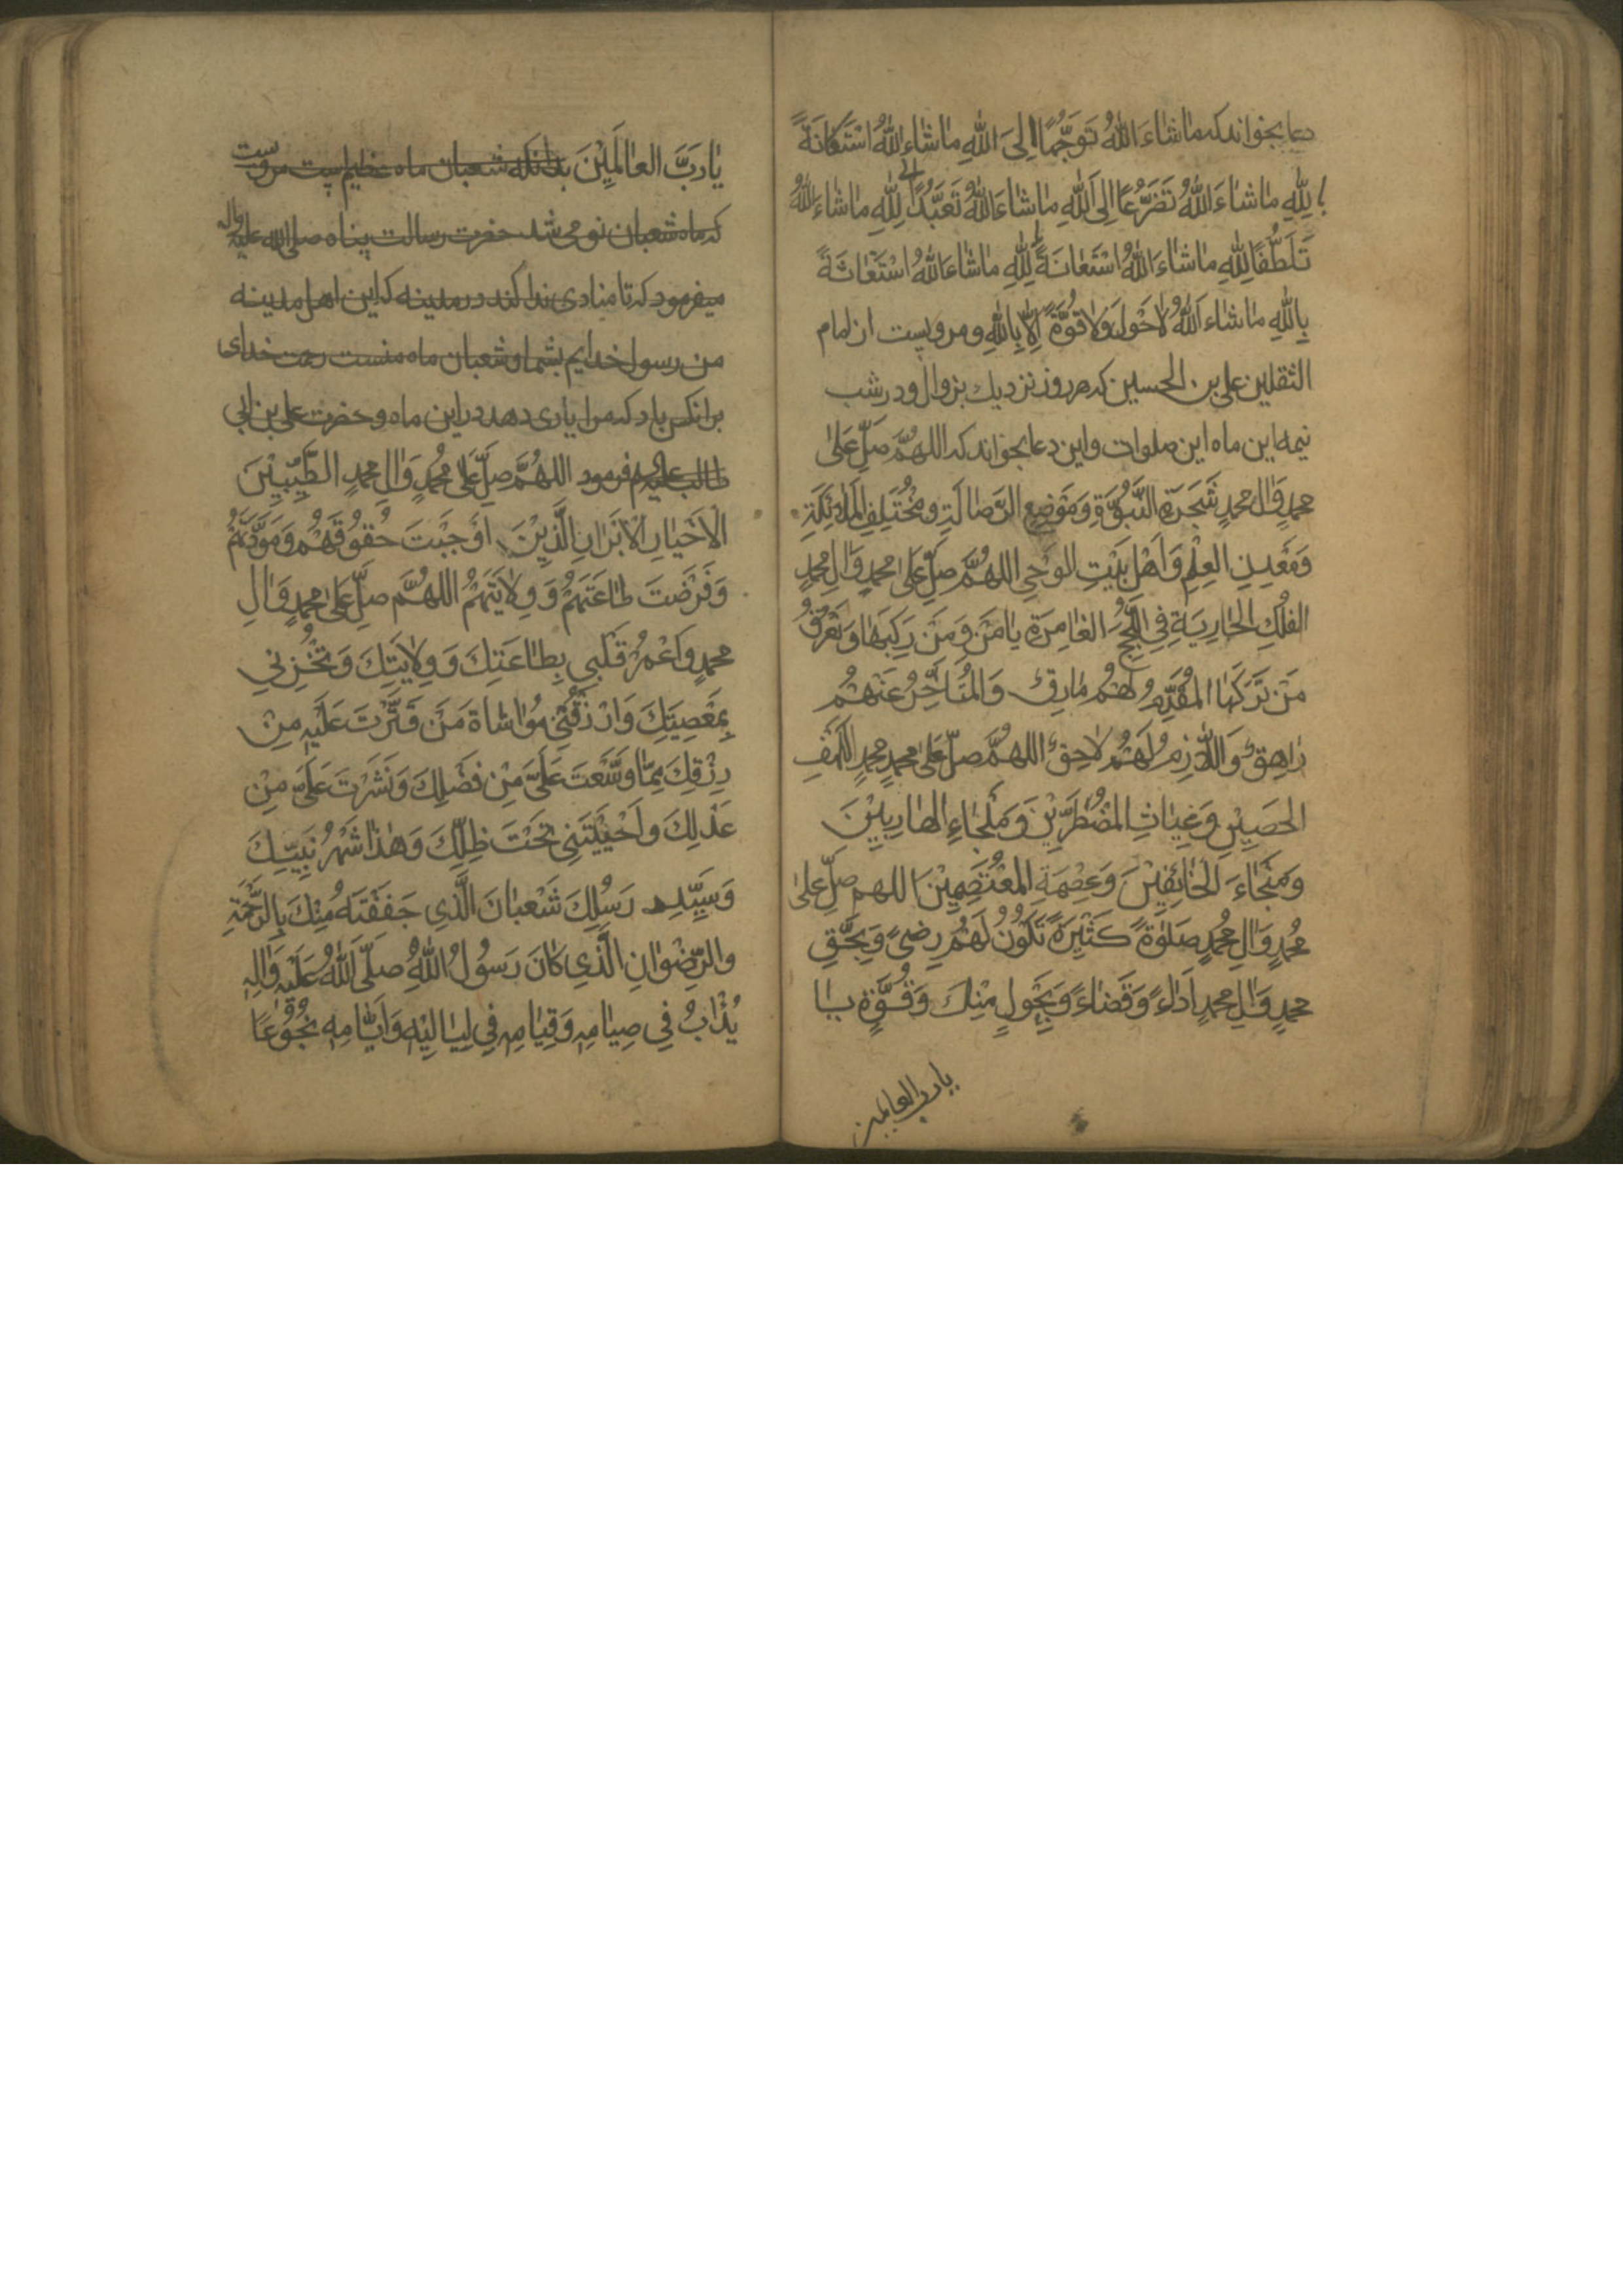 دعا بخواند که ماشٰاءَ اللّٰهُ تَوَجُّهًا اِلىَ اللّٰهِ مٰا شٰاءَ اللّٰهُ اسْتَكانَةً
لِلّٰهِ مٰا شٰاءَ اللّٰهُ تَضَرُّعًا اِلىَ اللّٰهِ مٰا شٰاءَ اللّٰهُ تَعَبُّدًا لِلّٰهِ مٰا شٰاءَ اللّٰهُ
تَلَطُّفًا لِلّٰهِ مٰا شٰاءَ اللّٰهُ اسْتَعٰانَةً لِلّٰهِ مٰا شٰاءَ اللّٰهُ اسْتَغٰاثَةً
بِاللّٰهِ مٰا شٰاء اللّٰهُ لٰا حَوْلَ وَلٰا قُوَّةَ اِلّٰا بِاللّٰهِ و مرویست از امام
الثقلین علی بن الحسین که هر روز نزدیك بزوال و در شب
نیمه این ماه این صلوات و این دعا بخواند که اللهُمَّ صَلِّ عَلىٰ
محمدٍ وَاٰل محمدٍ شَجَرَةِ النُّبُوَّةِ وَمَوْضِعِ الرَّضٰالَةِ و مُخْتَلِفِ المَلٰائِكَةِ
وَمَعْدِنِ العِلْمِ وَاَهْلِ بَيْتِ الوَحْيِ اللهُمَّ صلِّ عَلىٰ محمدٍ وَاٰلِ محمدٍ
الفُلْكِ الجٰارِيَةِ فِي اللُّجَجِ الغٰامِرَةِ يٰامَنُ وَمَنْ رَكِبَهٰا وَيَغْرَقُ
مَنْ تَرَكَهٰا المُقَدِّمُ لَهُمْ مٰارِقٌ وَالمُتَاَخِّرُ عَنْهُمْ
زٰاهِقٌ وَاللّٰازِمُ لَهُمْ لٰاحِقٌ اللهُمَّ صلِّ عَلىٰ محمدٍ محمدٍ الكَهْفِ
الحَصِيْنِ وَغِيٰاثِ المُضْطَرِّيْنَ وَمَلْجٰاءِ الهٰارِبِيْنَ
وَمَنْجٰاءَ الخٰائِفِيْنَ وَعِصْمَةِ المُعْتَصِمِيْنَ اللهم صلِّ عَلىٰ
مُحمدٍ وَاٰلِ مُحمدٍ صَلٰوةً كَثِيْرَةً تَكُوْنُ لَهُمْ رِضىً وَبِحَقِّ
محمدٍ وَاٰلِ محمدٍ اَدٰاءً وَقَضٰاءً وَبِحَوْلٍ مِنْكَ وَقُوَّةٍ بٰا
یارب العالمین
يٰارَبَّ العٰالَمِيْنَ بدانکه شعبان ماه عظیم
که ماه شعبان نو می شد حضرت رسالت پناه صلی الله علیه واله
میفرمود که تا منادی ندا کند در مدینه که این اهل مدینه
من رسول خدایم بشما و شعبان ماه منست رحمت خدای
برانکس باد که مرا یاری دهد در این ماه و حضرت علی بن ابی
طالب فرمود اللهُمَّ صلِّ عَلىٰ مُحمدٍ وَاٰلِ محمدٍ الطَّيِّبِيْنَ
الاَخْيٰارِ الاَبْرٰارِ الَّذِيْنَ اَوْجَبْتَ حُقُوْقَهُمْ وَمَوَدَّتَهُمْ
وَفَرَضْتَ طٰاعَتَهُمْ وَوِلٰايَتَهُمْ اللهُمَّ صلِّ عَلىٰ محمدٍ وَاٰلِ
محمدٍ وَاعْمُرْ قَلْبي بِطٰاعَتِكَ وَوِلٰايَتِكَ وَتُخْزِني
بِمَعْصِيَتِكَ وَارْزُقْنِي مُوٰاسٰاةَ مَنْ قَتَّرْتَ عَلَيْهِ مِنْ
رِزْقِكَ بِمٰا وَسَّعْتَ عَلَيَّ مِنْ فَضْلِكَ وَنَشَرْتَ عَلَيَّ مِنْ
عَدْلِكَ وَاَحْيَيْتَنِي تَحْتَ ظِلِّكَ وَهٰذٰا شَهْرُ نَبِيِّكَ
وَسَيِّدِ رَسُلِكَ شَعْبٰانَ الَّذِي حَفَفْتَهُ مِنْكَ بِالرَّحْمَةِ
والرِّضْوٰانِ الَّذِي كٰانَ رَسُوْلُ اللّٰهِ صلَّى اللّٰهُ عَلَيْهِ وَاٰلِهِ
يُدْاَبُ فِي صِيٰامِهِ وَقِيٰامِهِ فِي لَيٰالِيْهِ وَاَيّٰامِهِ بُخُوْعًا